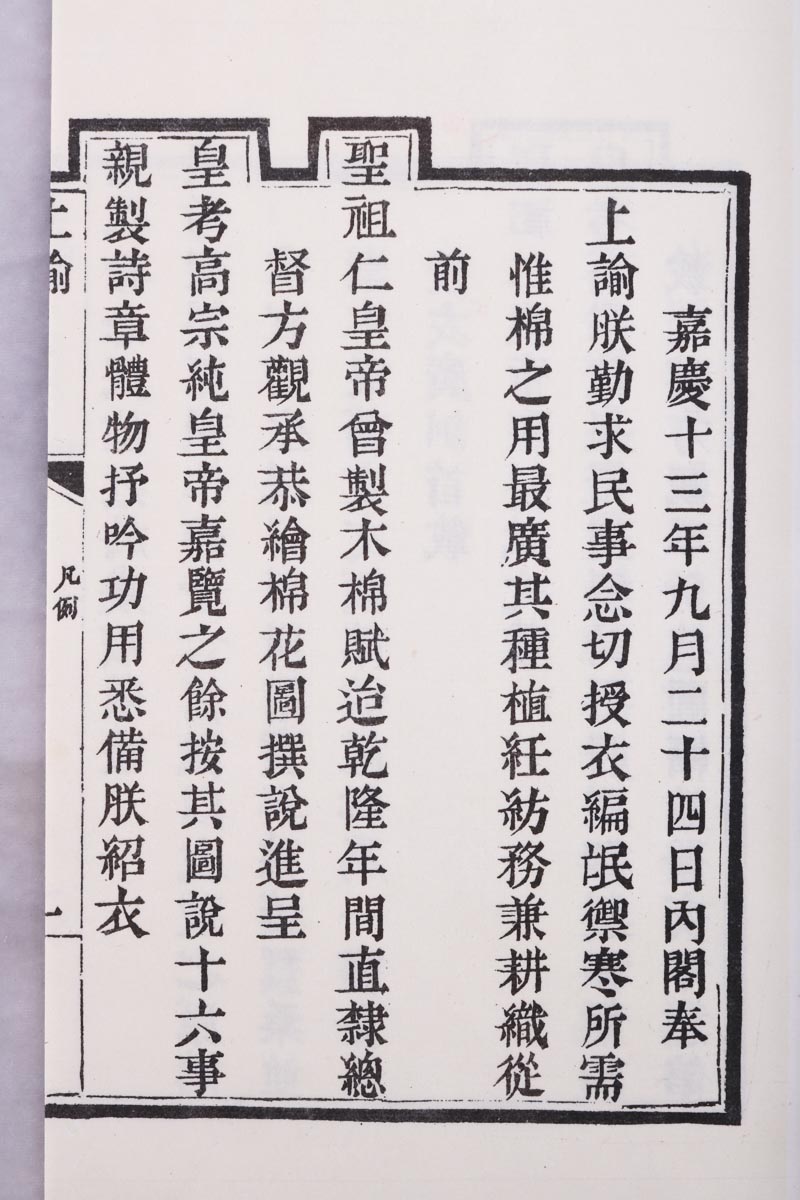 嘉慶十三年九月二十四日內閣奉
上諭朕勤求民事念切授衣編氓禦寒所需
惟棉之用最廣其種植紝紡務兼耕織從
前
聖祖仁皇帝曾製木棉賦迨乾隆年間直隸總
督方觀承恭繪棉花圖撰說進呈
皇考高宗純皇帝嘉覽之餘按其圖說十六事
親製詩章體物抒吟功用悉備朕紹衣
上諭
凡例
一